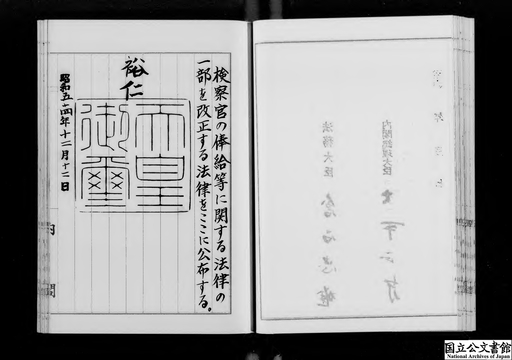 検察官の俸給等に関する法律の
一部を改正する法律をここに公布する。
裕仁
天皇
御璽
昭和五十四年十二月十二日
内閣
内閣総理大臣
法務大臣
国立公文書館
National Archives of Japan